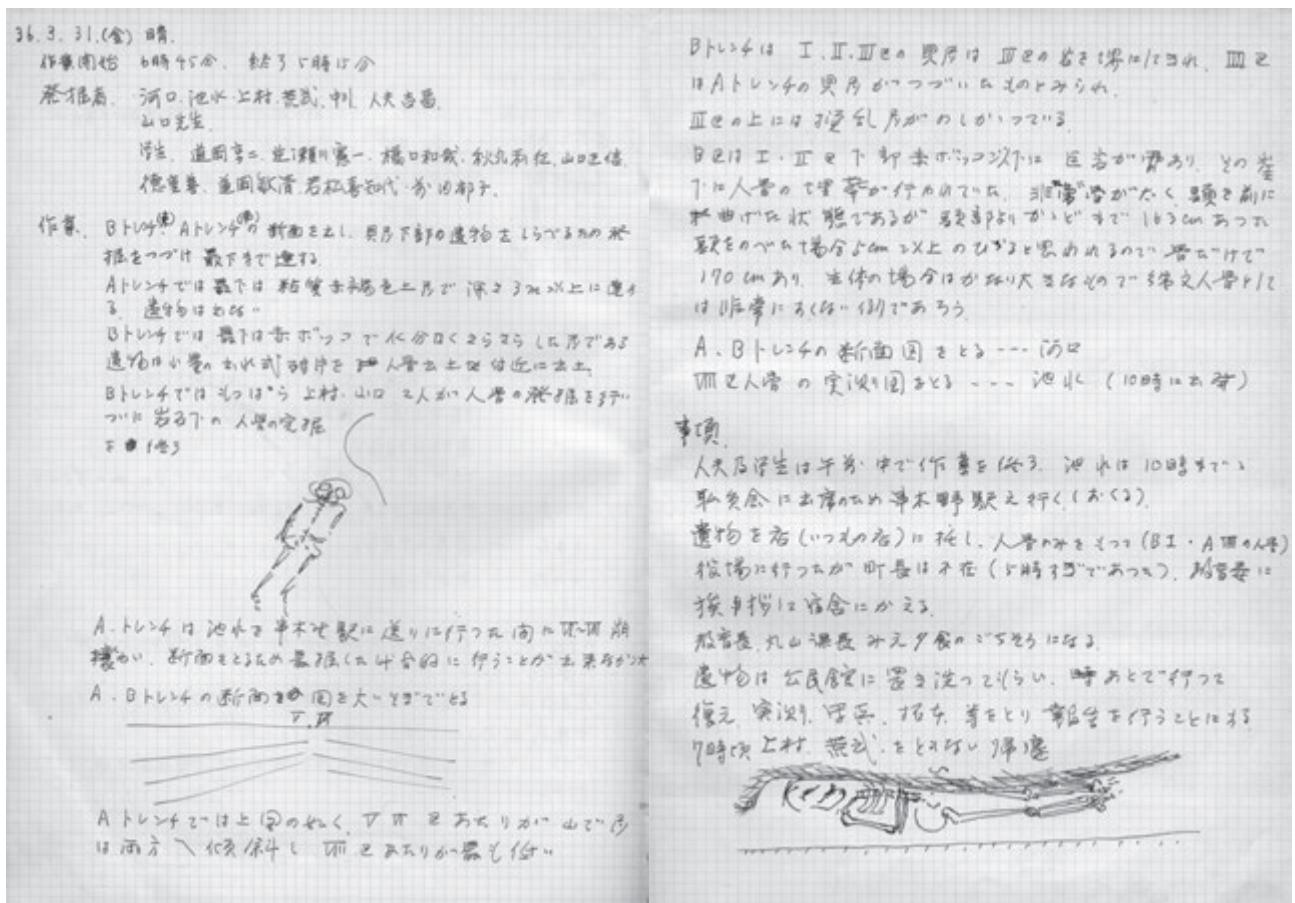 36.3.31.(金) 晴.
作業開始 6時45分. 終了5時15分
発掘者. 河口.池水.上村.荒武.中川 人夫
山口先生.
学生. 道岡享二. 橋口和哉. 山口
作業. Bトレンチ Aトレンチの断面を出し. 貝層下部の遺物をしらべるため発
掘をつづけ最下まで達する.
Aトレンチでは最下は粘質赤褐色土層で深さ3m以上に達す
る. 遺物はもない
Bトレンチでは最下は赤ボッコで水分なくさらさらした層である
遺物は少量の出水式 人骨出土 付近に出土.
Bトレンチではもっぱら上村.山口2人が人骨の発掘を
ついに岩石下の人骨の完掘
を終る
A.トレンチは池水を串木野駅に送りに行った間に 崩
壊 断面をとるため に行うことが出来なかった
A.Bトレンチの断面図を大いそぎでとる
Aトレンチでは上図の如く. V VI 区あたりが山で層
は両方へ傾斜し VIII区あたりが最も低い
Bトレンチは I.II.III区の貝層は III区の岩を境にして
はAトレンチの貝層がつづいたものとみられ.
III区の上には攪乱層がのしかかっている
B区はI・II区下部赤ボッコ以下に 岩があり その
下に人骨の埋葬が行われていた. 非常に骨が太く 頭を前に
曲げた状態であるが 頭部よりかかとまで163cmあった
頭をのべた場合5cm以上のびると思われるので骨だけで
170cmあり. 生体の場合はかなり大きなもので縄文人骨として
は非常にすくない例であろう
A.Bトレンチの断面図をとる --- 河口
VIII区人骨の実測図をとる --- 池水 (10時に出発)
事項.
人夫及学生は午前中で作業を終る. 池水は10時まで
に出席のため串木野駅え行く(おくる).
遺物を店(いつもの店)に托し. 人骨のみをもって(BI・AVIIIの人骨)
役場に行ったが町長は不在(5時すぎであった). 教育委に
挨拶し宿舎にかえる.
教育長.丸山課長みえ夕食のごちそうになる.
遺物は公民館に置き洗ってもらい. あとで行って
復元.実測.写真.拓本.等をとり報告を行うことにする
7時頃上村.荒武.をともない帰